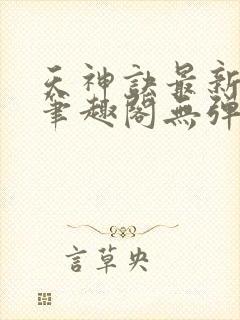 天神訣最新
筆趣閣無彈
言草央